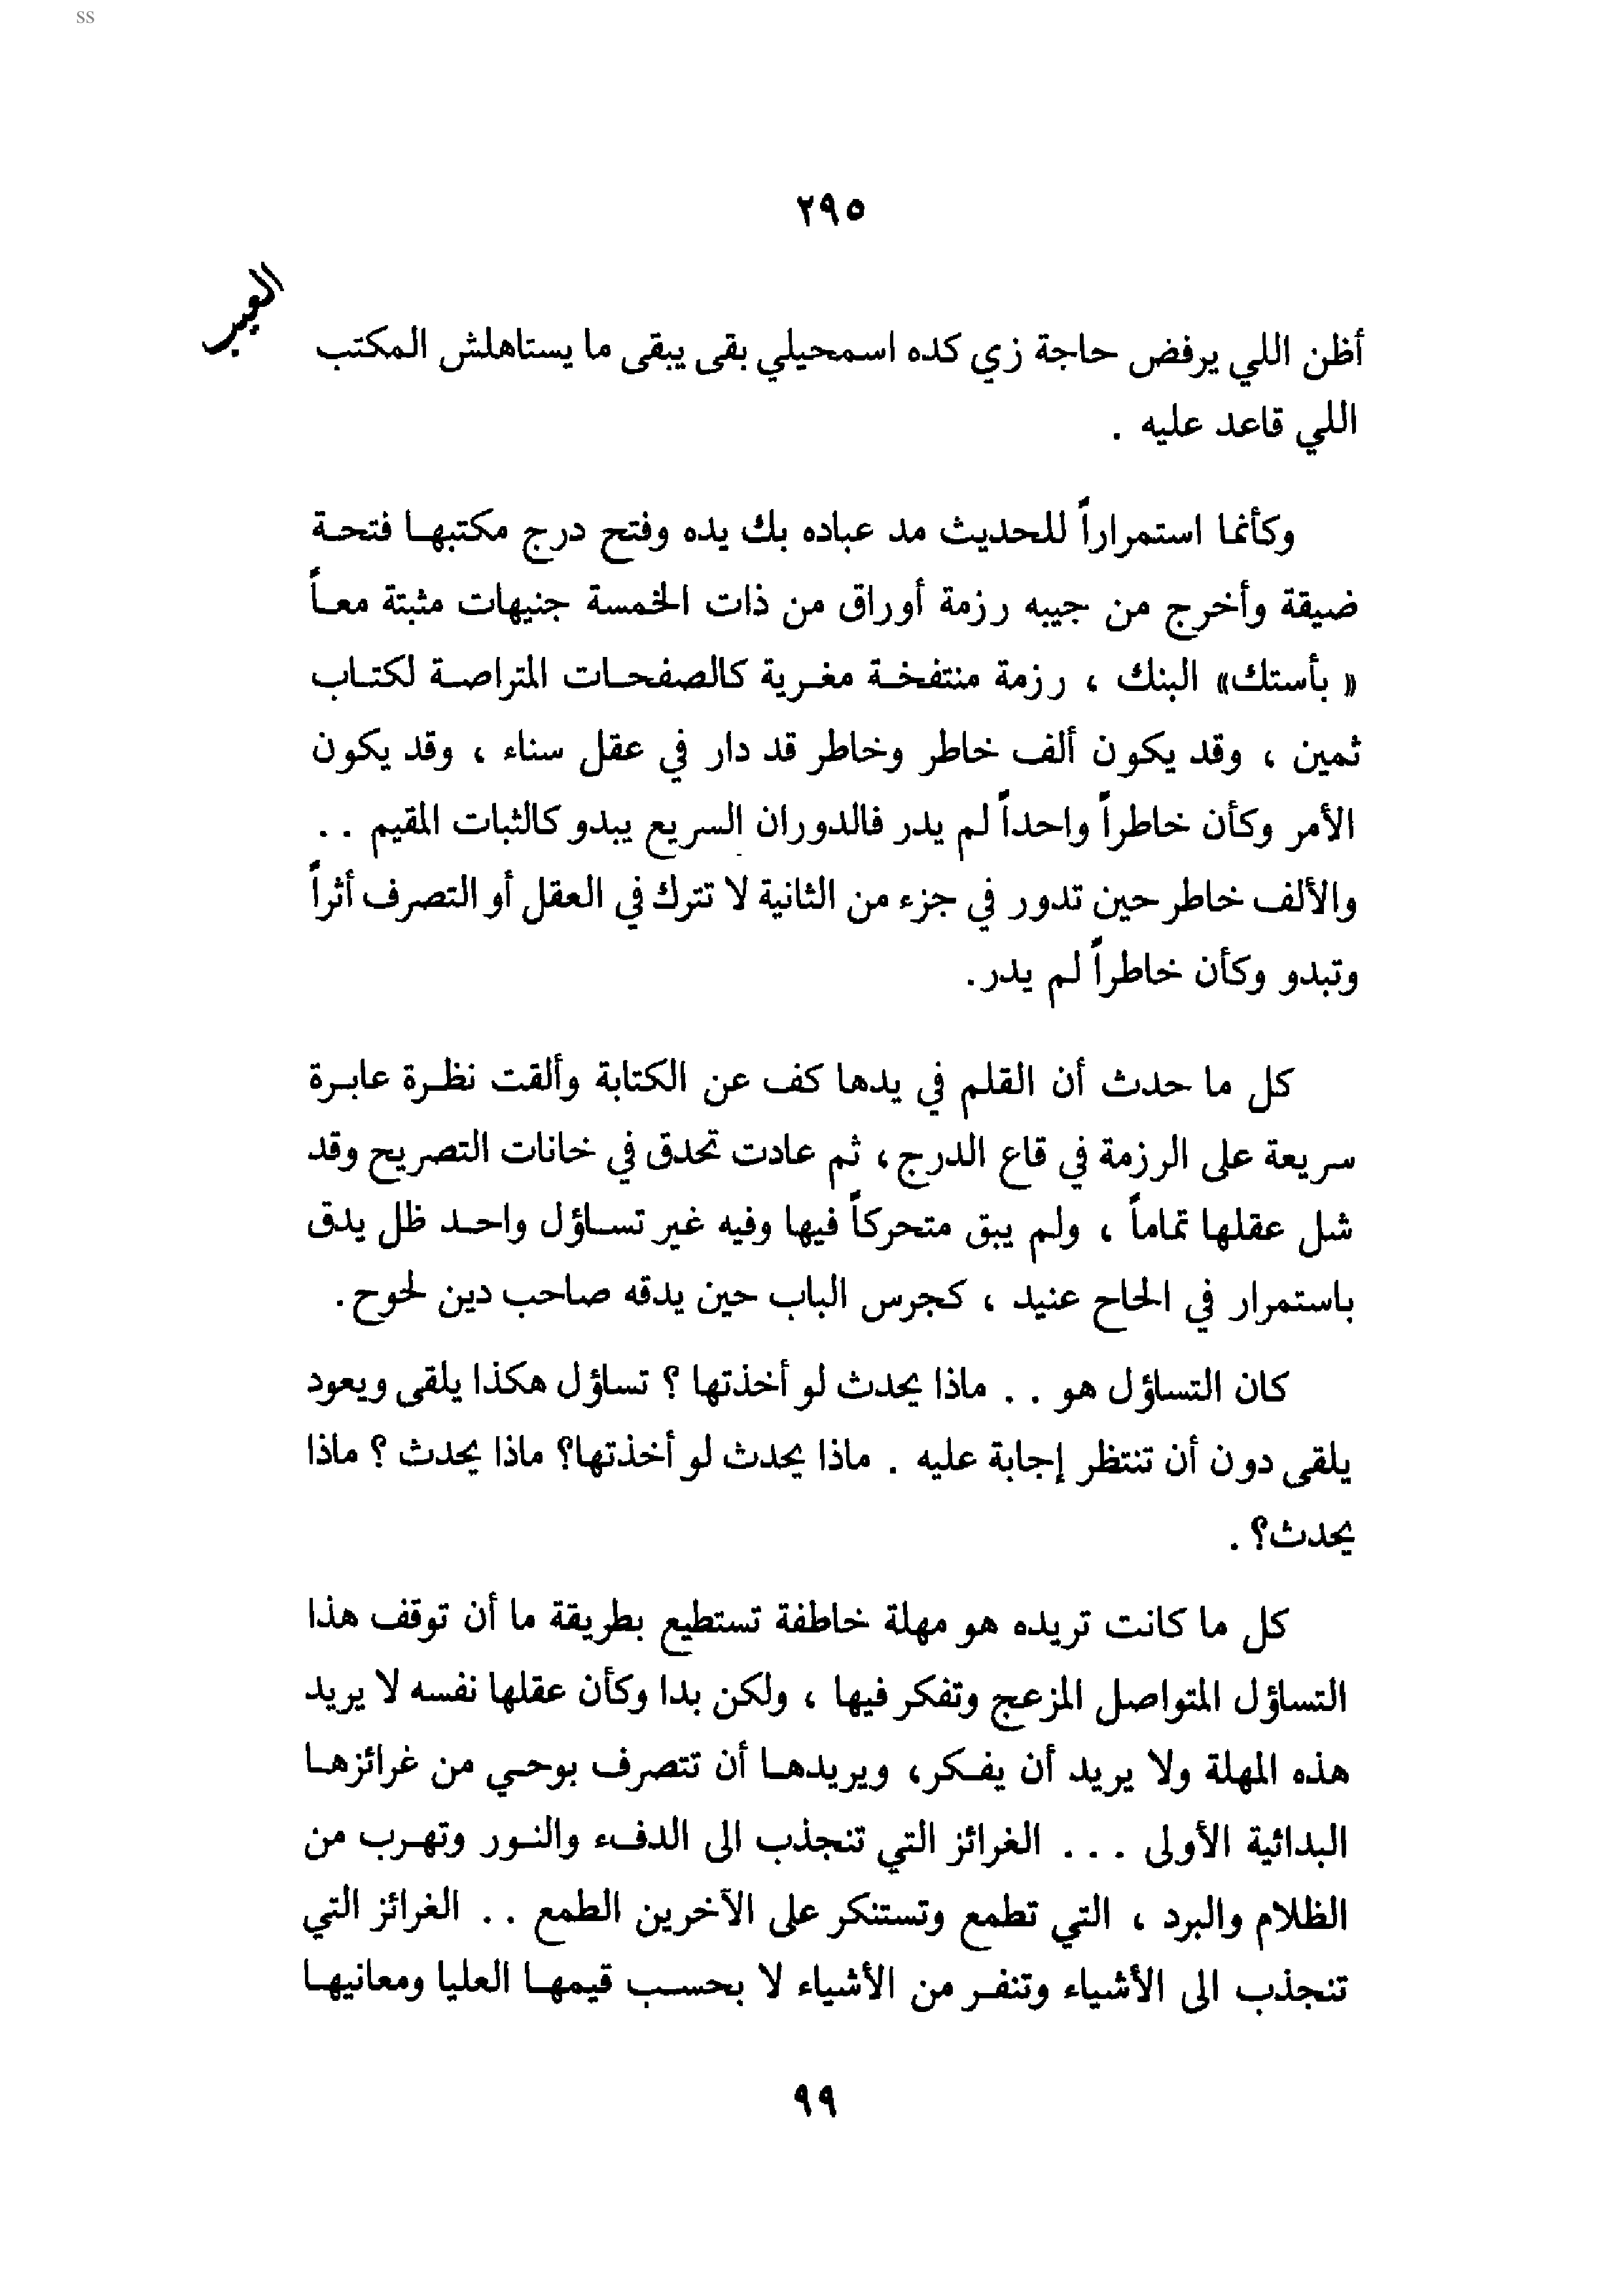 ss
٢٩٥
العيب
أظن اللي يرفض حاجة زي كده اسمحيلي بقى يبقى ما يستاهلش المكتب
اللي قاعد عليه .
وكأنما استمراراً للحديث مد عباده بك يده وفتح درج مكتبهـا فتحـة
ضيقة وأخرج من جيبه رزمة أوراق من ذات الخمسة جنيهات مثبتة معـاً
« بأستك» البنك ، رزمة منتفخـة مغـرية كالصفحـات المتراصـة لكتـاب
ثمين ، وقد يكون ألف خاطر وخاطر قد دار في عقل سناء ، وقد يكون
الأمر وكأن خاطراً واحداً لم يدر فالدوران السريع يبدو كالثبات المقيم . .
والألف خاطر حين تدور في جزء من الثانية لا تترك في العقل أو التصرف أثراً
وتبدو وكأن خاطراً لم يدر.
كل ما حدث أن القلم في يدها كف عن الكتابة وألقت نظـرة عابـرة
سريعة على الرزمة في قاع الدرج، ثم عادت تحدق في خانات التصريح وقد
شل عقلها تماماً ، ولم يبق متحركاً فيها وفيه غير تسـاؤل واحـد ظل يدق
باستمرار في الحاح عنيد ، كجرس الباب حين يدقه صاحب دين لحوح.
كان التساؤل هو . . ماذا يحدث لو أخذتها ؟ تساؤل هكذا يلقى ويعود
يلقى دون أن تنتظر إجابة عليه . ماذا يحدث لو أخذتها؟ ماذا يحدث ؟ ماذا
يحدث؟ .
كل ما كانت تريده هو مهلة خاطفة تستطيع بطريقة ما أن توقف هذا
التساؤل المتواصل المزعج وتفكر فيها ، ولكن بدا وكأن عقلها نفسه لا يريد
هذه المهلة ولا يريد أن يفـكر، ويريدهـا أن تتصرف بوحـي من غرائزهـا
البدائية الأولى . . . الغرائز التي تنجذب الى الدفء والنـور وتهـرب من
الظلام والبرد ، التي تطمع وتستنكر على الآخرين الطمع . . الغرائز التي
تنجذب الى الأشياء وتنفـر من الأشياء لا بحسـب قيمهـا العليا ومعانيهـا
٩٩